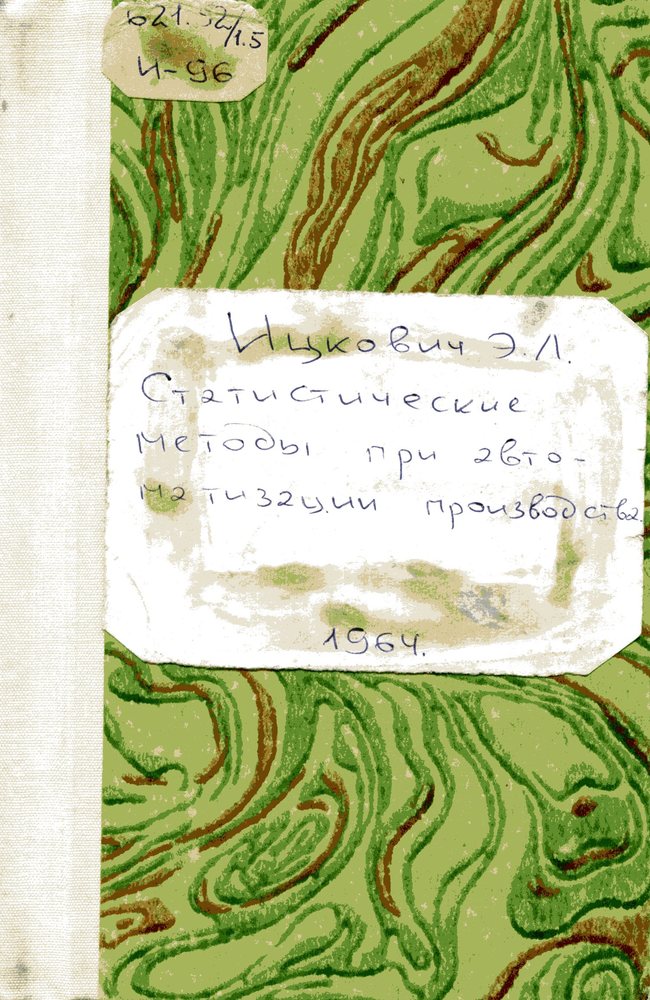 621.52/1.5
И-96
Ицкович Э.Л.
Статистические
методы при авто-
матизации производства.
1964.